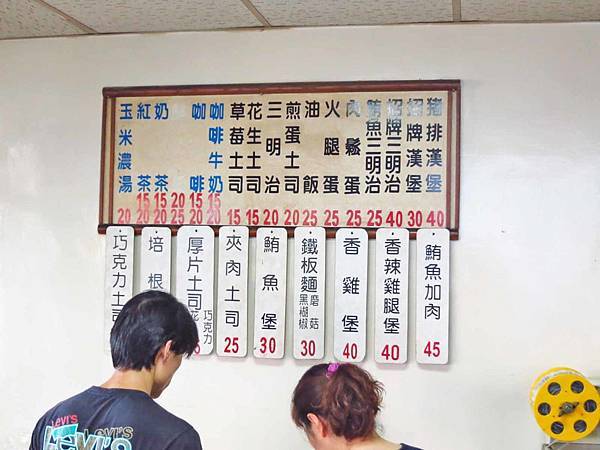 豬排漢堡 40
招牌漢堡 30
招牌三明治 40
鮪魚三明治 25
肉鬆蛋 25
火腿蛋 25
油飯 25
煎蛋土司 20
三明治 20
花生土司 15
草莓土司 15
咖啡牛奶 15 20
咖啡 15 20
20 25
奶茶 15 20
紅茶 15 20
玉米濃湯 20
鮪魚加肉 45
香辣雞腿堡 40
香雞堡 40
鐵板麵 磨菇 黑楜椒 30
鮪魚堡 30
夾肉土司 25
厚片土司 巧克力 花
培根
巧克力土司
Levi's
Levi's
Levi's